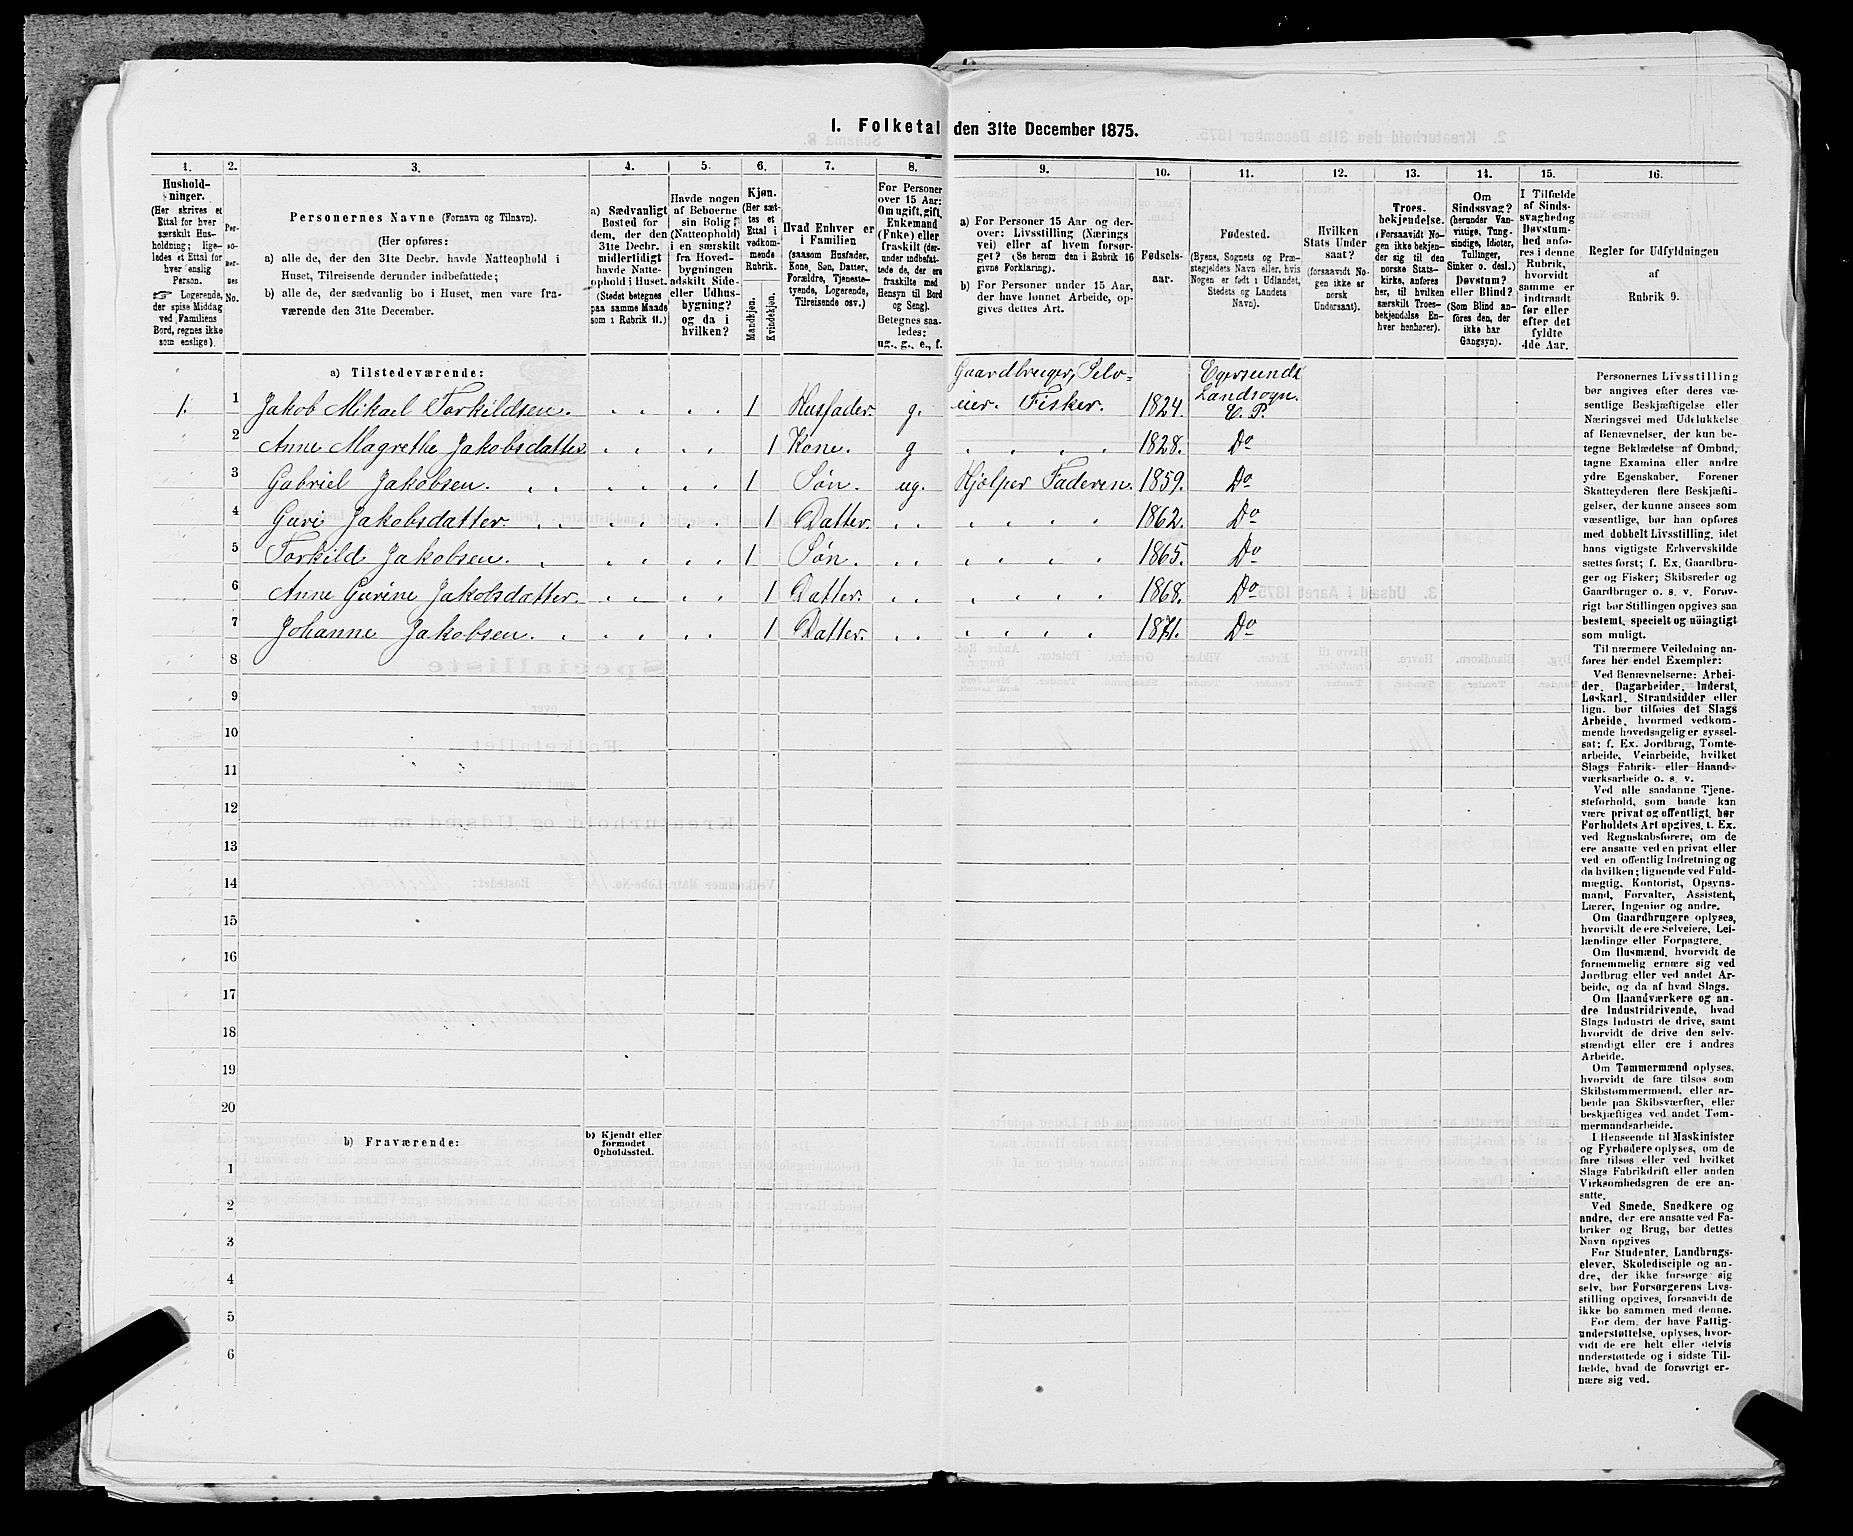 I. Folketal den 31te December 1875.
1. 2. 3. 4. 5. 6. 7. 8. 9. 10. 11. 12. 13. 14. 15. 16.
Hushold-
ninger.
(Her skrives et
Ettal for hver
særskilt Hus-
holdning; lige-
ledes et Ettal for
hver enslig
Person.
☞ Logerende,
der spise Middag
ved Familiens
Bord, regnes ikke
som enslige).
Per-
so-
ner-
nes
No.
Personernes Navne (Fornavn og Tilnavn).
(Her opføres:
a) alle de, der den 31te Decbr. havde Natteophold i
Huset, Tilreisende derunder indbefattede;
b) alle de, der sædvanlig bo i Huset, men vare fra-
værende den 31te December.
a) Sædvanligt
Bosted for
dem, der den
31te Decbr.
midlertidigt
havde Natte-
ophold i Huset.
(Stedet betegnes
paa samme Maade
som i Rubrik 11.)
Havde nogen
af Beboerne
sin Bolig
(Natteophold)
i en særskilt
fra Hoved-
bygningen
adskilt Side-
eller Udhus-
bygning?
og da i
hvilken?
Kjøn.
(Her sæt-
tes et
Ettal i
vedkom-
mende
Rubrik.
Mandkjøn.
Kvindekjøn.
Hvad Enhver er
i Familien
(saasom Husfader,
Kone, Søn, Datter,
Forældre, Tjeneste-
tyende, Logerende,
Tilreisende osv.)
For Personer
over 15 Aar:
Om ugift, gift,
Enkemand
(Enke) eller
fraskilt (der-
under indbefat-
tede de, der ere
fraskilte med
Hensyn til Bord
og Seng).
Betegnes saa-
ledes:
ug., g., e., f.
a) For Personer 15 Aar og der-
over: Livsstilling (Nærings
vei) eller af hvem forsør-
get? (Se herom den i Rubrik 16
givne Forklaring).
b) For Personer under 15 Aar,
der have lønnet Arbeide, op-
gives dettes Art.
Fødsels-
aar.
Fødested.
(Byens, Sognets og Præ-
stegjeldets Navn eller, hvis
Nogen er født i Udlandet,
Stedets og Landets
Navn).
Hvilken
Stats Under
saat?
(forsaavidt No-
gen ikke er
norsk
Undersaat).
Troes-
bekjendelse.
(Forsaavidt No-
gen ikke bekjen-
der sig til den
norske Stats-
kirke, anføres
her, til hvilken
særskilt Troes-
bekjendelse En-
hver henhører).
Om
Sindssvag?
(herunder Van-
vittige, Tung-
sindige, Idioter,
Tullinger,
Sinker o. desl.)
Døvstum?
eller Blind?
(Som Blind an-
føres den, der
ikke har
Gangsyn).
I Tilfælde
af Sinds-
svaghed og
Døvstum-
hed anfø-
res i denne
Rubrik,
hvorvidt
samme er
indtraadt
før eller
efter det
fyldte
4de Aar.
Regler for Udfyldningen
af
Rubrik 9.
a) Tilstedeværende:
1. 1 Jakob Mikael Torkildsen. 1 Husfader. g. Gaardbruger, Selv-
eier. Fisker. 1824. Egersunds
Landsogn.
E. P.
2 Anne Magrethe Jakobsdatter. 1 Kone. g 1828. Do
3 Gabriel Jakobsen. 1 Søn. ug. Hjælper Faderen. 1859. Do
4 Guri Jakobsdatter. 1 Datter. 1862. Do
5 Torkild Jakobsen. 1 Søn. 1865. Do
6 Anne Gurine Jakobsdatter. 1 Datter. 1868. Do
7 Johanne Jakobsen. 1 Datter. 1871. Do
8
9
10
11
12
13
14
15
16
17
18
19
20
b) Fraværende:
b) Kjendt eller
formodet
Opholdssted.
1
2
3
4
5
6
Personernes Livsstilling
bør angives efter deres væ-
sentlige Beskjæftigelse eller
Næringsvei med Udelukkelse
af Benævnelser, der kun be-
tegne Beklædelse af Ombud,
tagne Examina eller andre
ydre Egenskaber. Forener
Skatteyderen flere Beskjæfti-
gelser, der kunne ansees som
væsentlige, bør han opføres
med dobbelt Livsstilling, idet
hans vigtigste Erhvervskilde
sættes først; f. Ex. Gaardbru-
ger og Fisker; Skibsreder og
Gaardbruger o. s. v. Forøv-
rigt bør Stillingen opgives saa
bestemt, specielt og nöiagtigt
som muligt.
Til nærmere Veiledning an-
føres her endel Exempler:
Ved Benævnelserne: Arbei-
der, Dagarbeider, Inderst,
Løskarl, Strandsidder eller
lign. bør tilføies det Slags
Arbeide, hvormed vedkom-
mende hovedsagelig er syssel-
sat; f. Ex. Jordbrug, Tomte-
arbeide, Veiarbeide, hvilket
Slags Fabrik- eller Haand-
værksarbeide o. s. v.
Ved alle saadanne Tjene-
steforhold, som baade kan
være privat og offentligt, bør
Forholdets Art opgives, t. Ex.
ved Regnskabsførere, om de
ere ansatte ved en privat eller
ved en offentlig Indretning og
da hvilken; lignende ved Fuld-
mægtig, Kontorist, Opsyns-
mand, Forvalter, Assistent,
Lærer, Ingeniør og andre.
Om Gaardbrugere oplyses,
hvorvidt de ere Selveiere, Lei-
lændinge eller Forpagtere.
Om Husmænd, hvorvidt de
fornemmelig ernære sig ved
Jordbrug eller ved andet Ar-
beide, og da af hvad Slags.
Om Haandværkere og an-
dre Industridrivende, hvad
Slags Industri de drive, samt
hvorvidt de drive den selv-
stændigt eller ere i andres
Arbeide.
Om Tømmermænd oplyses,
hvorvidt de fare tilsøs som
Skibstømmermænd, eller ar-
beide paa Skibsværfter, eller
beskjæftiges ved andet Tøm-
mermandsarbeide.
I Henseende til Maskinister
og Fyrbødere oplyses, om de
fare tilsøs eller ved hvilket
Slags Fabrikdrift eller anden
Virksomhedsgren de ere an-
satte.
Ved Smede, Snedkere og
andre, der ere ansatte ved Fa-
briker og Brug, bør dettes
Navn opgives
For Studenter, Landbrugs-
elever, Skoledisciple og an-
dre, der ikke forsørge sig
selv, bør Forsørgerens Livs-
stilling opgives, forsaavidt de
ikke bo sammen med denne.
For dem, der have Fattig-
understøttelse, oplyses, hvor-
vidt de ere helt eller delvis
understøttede og i sidste Til-
fælde, hvad de forøvrigt er-
nære sig ved.